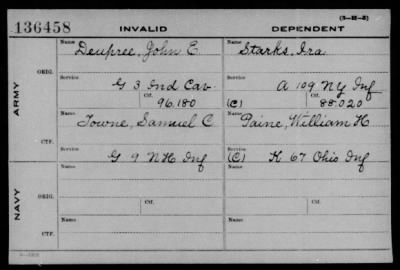 (3-2112-5)
136458 INVALID DEPENDENT
Name Name
Deupree, John E. Starks, Ira
ORIG.
Service Service
G 3 Ind Cav. A 109 NY Inf
Ctf. Ctf.
96.180 (C) 88.020
ARMY
Name Name
Towne, Samuel C Paine, William H
CTF.
Service Service
G 9 NH Inf (C) K 67 Ohio Inf
Name Name
ORIG.
Service Service
NAVY
Ctf. Ctf.
Name Name
CTF.
Service Service